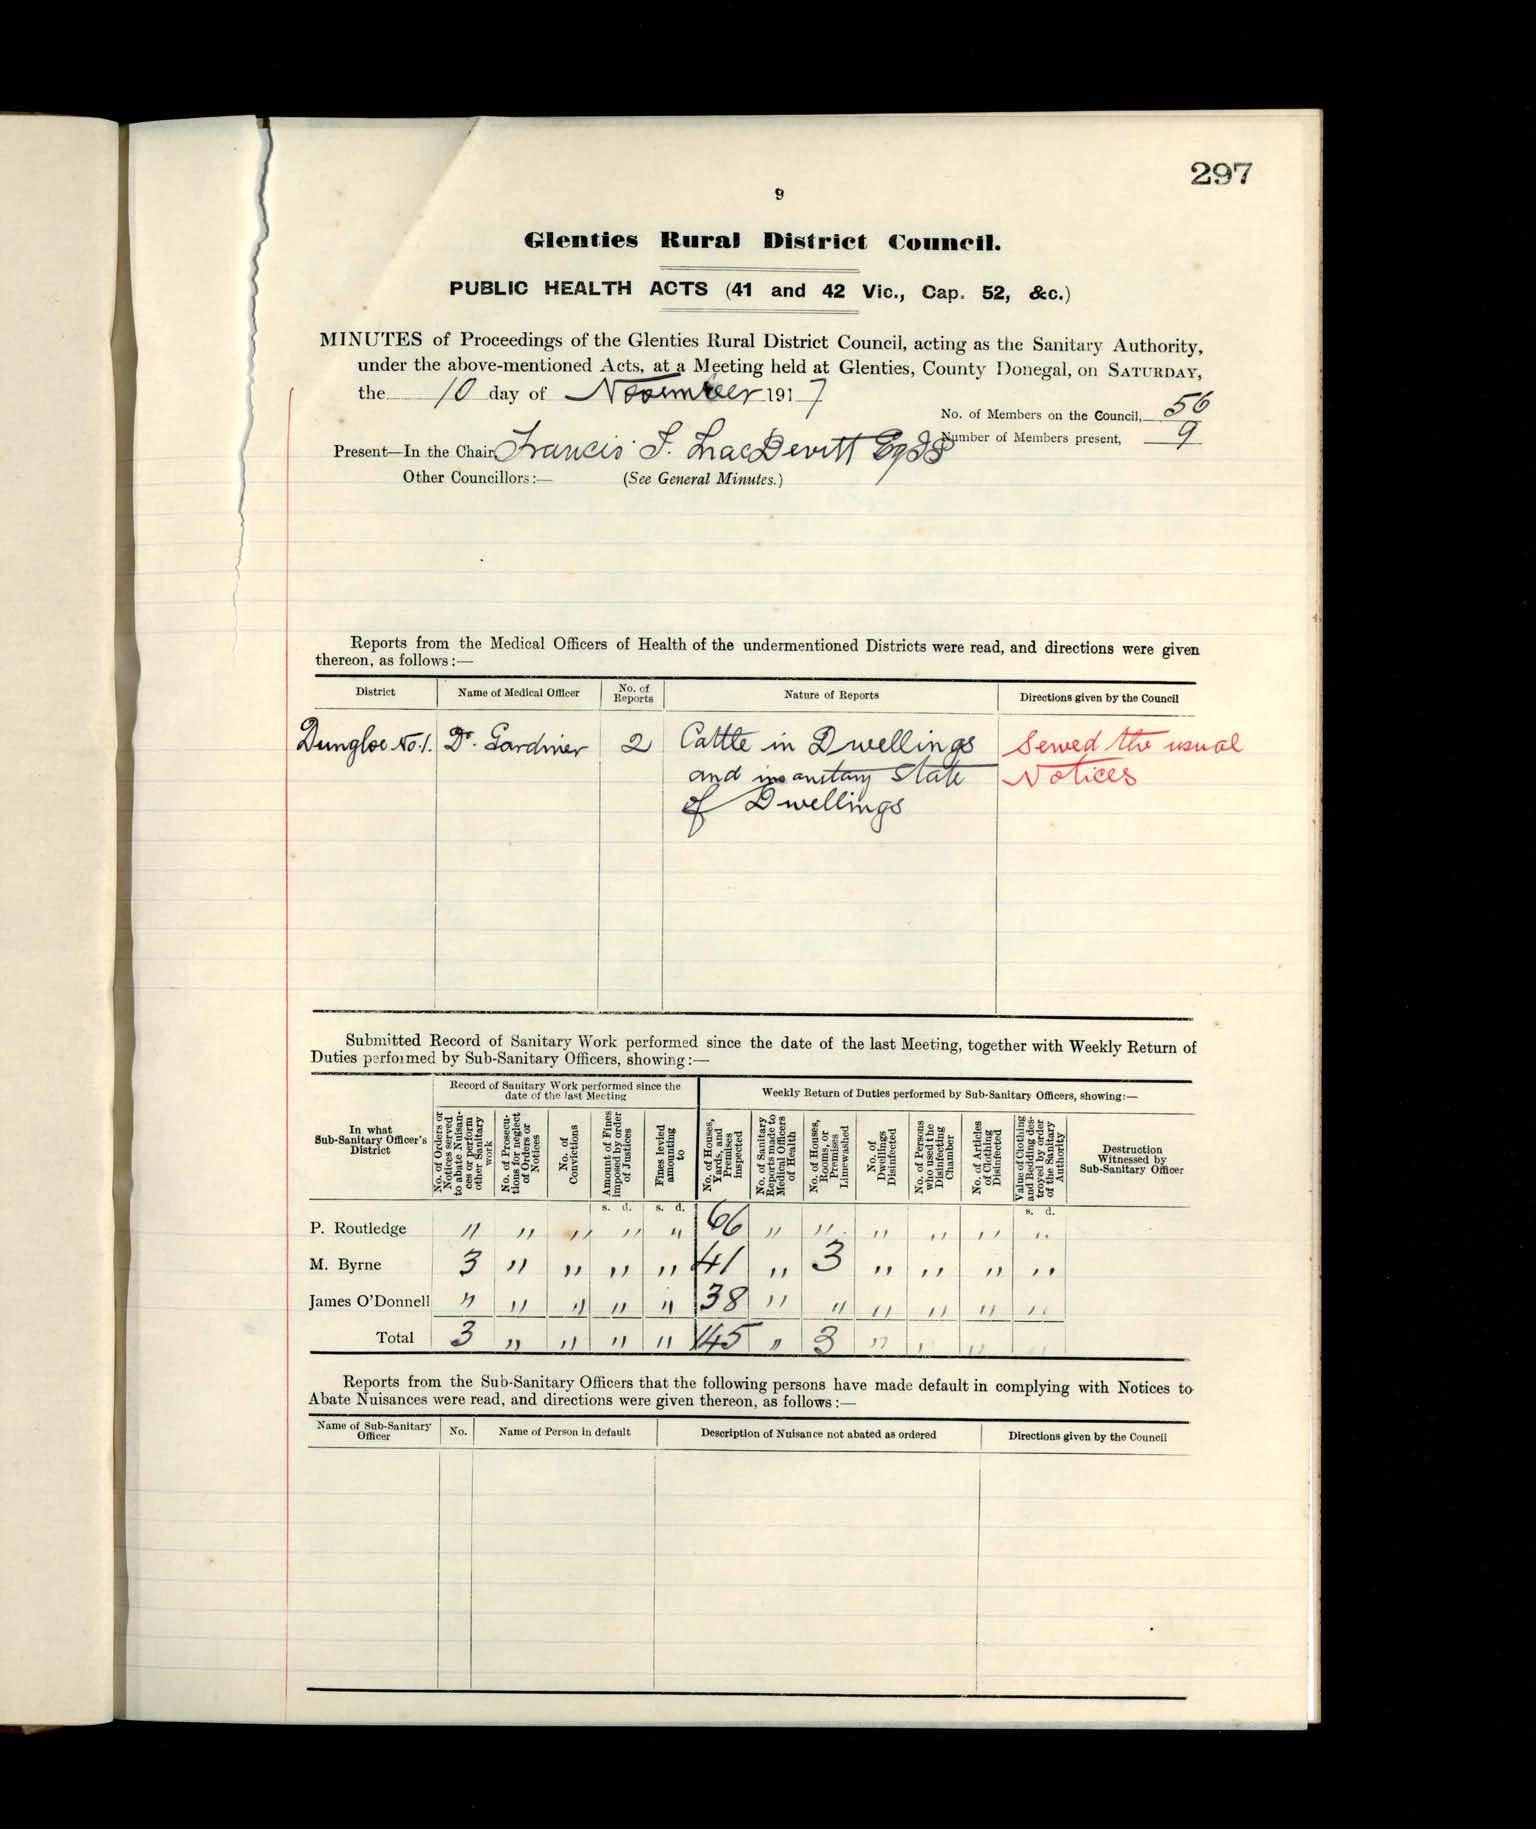 297
9
Glenties Rural District Council.
PUBLIC HEALTH ACTS (41 and 42 Vic., Cap. 52, &c.)
MINUTES of Proceedings of the Glenties Rural District Council, acting as the Sanitary Authority,
under the above-mentioned Acts, at a Meeting held at Glenties, County Donegal, on SATURDAY,
the 10 day of November 1917
No. of Members on the Council, 56
Number of Members present, 9
Present—In the Chair Francis T. MacDevitt Esq JP
Other Councillors:— (See General Minutes.)
Reports from the Medical Officers of Health of the undermentioned Districts were read, and directions were given
thereon, as follows:—
District Name of Medical Officer No. of Reports Nature of Reports Directions given by the Council
Dungloe No. 1. Dr. Gardiner 2 Cattle in Dwellings Served the usual
and insanitary State Notices
of Dwellings
Submitted Record of Sanitary Work performed since the date of the last Meeting, together with Weekly Return of
Duties performed by Sub-Sanitary Officers, showing:—
In what Sub-Sanitary Officer's District
Record of Sanitary Work performed since the date of the last Meeting
Weekly Return of Duties performed by Sub-Sanitary Officers, showing:—
No. of Orders or Notices served to abate Nuisances or perform other Sanitary work
No. of Prosecutions for neglect of Orders or Notices
No. of Convictions
Amount of Fines imposed by order of Justices
Fines levied amounting to
No. of Houses, Yards, and Premises inspected
No. of Sanitary Reports made to Medical Officers of Health
No. of Houses, Rooms, or Premises Limewashed
No. of Dwellings Disinfected
No. of Persons who used the Disinfecting Chamber
No. of Articles of Clothing Disinfected
Value of Clothing and Bedding destroyed by order of the Sanitary Authority
Destruction Witnessed by Sub-Sanitary Officer
s. d. s. d. s. d.
P. Routledge " " " " " 66 " " " " " "
M. Byrne 3 " " " " 41 " 3 " " " "
James O'Donnell " " " " " 38 " " " " " "
Total 3 " " " " 145 " 3 " " " "
Reports from the Sub-Sanitary Officers that the following persons have made default in complying with Notices to
Abate Nuisances were read, and directions were given thereon, as follows:—
Name of Sub-Sanitary Officer No. Name of Person in default Description of Nuisance not abated as ordered Directions given by the Council